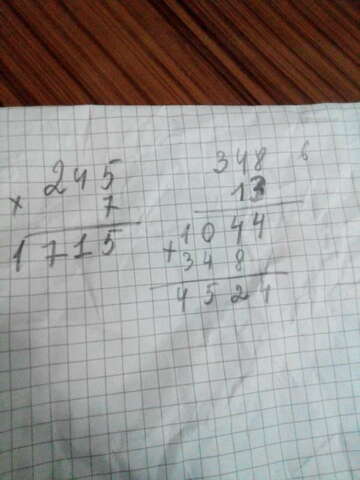 245
× 7
1715
348 6
13
1044
+ 348
4524